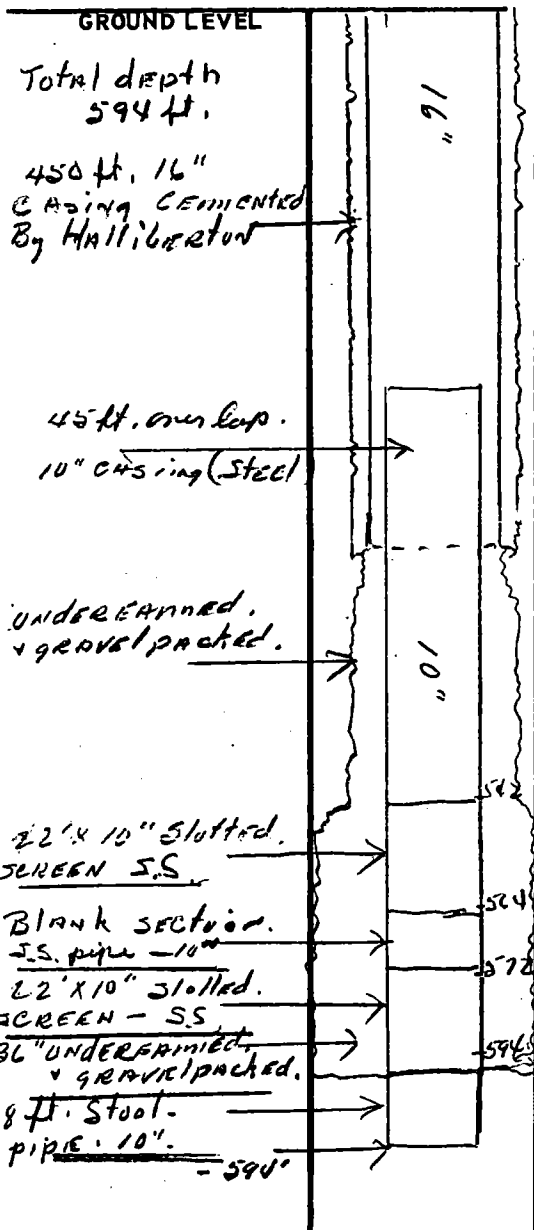 GROUND LEVEL
Total depth
594 ft.
16"
450 ft. 16"
CASing CEMENTED
By HAlliberton
45 ft. overlap.
10" CASing (STEEl
UNDEREAMED.
& GRAVEl PACKED.
10"
542
22' X 10" Slotted.
SCREEN S.S.
564
BlANk SECTion.
S.S. pipe - 10"
572
22' X 10" Slotted.
SCREEN - SS
36" UNDEREAMED.
594
& GRAVEl PACKED.
8 ft. Steel -
pipe. 10".
- 594'